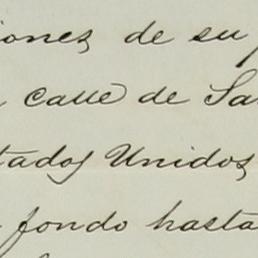 iones de su
calle de Sa
tados Unidos
fondo hasta